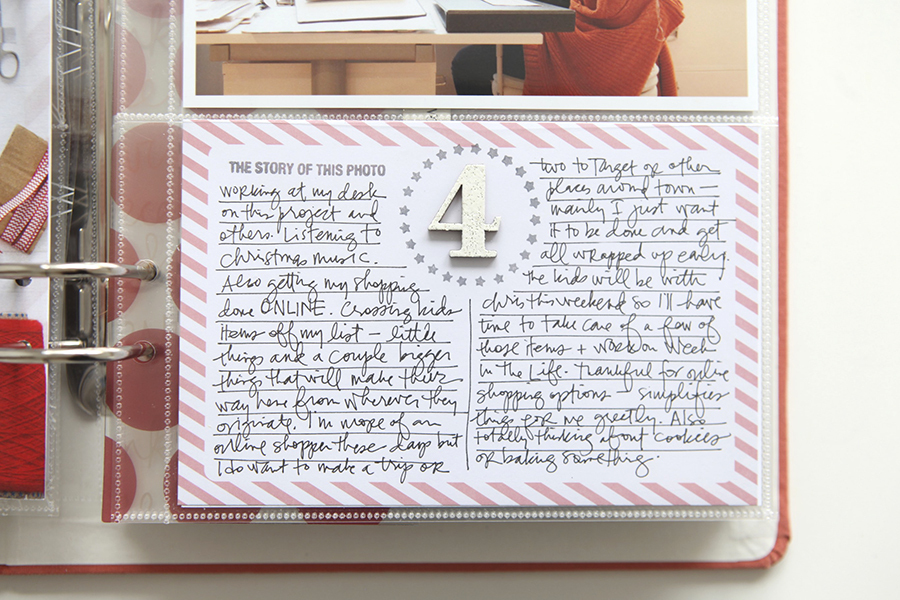 THE STORY OF THIS PHOTO
working at my desk
on this project and
others. Listening to
Christmas music.
Also getting my shopping
done ONLINE. Crossing kids
items off my list — little
things and a couple bigger
things that will make their
way here from wherever they
originate. I'm more of an
online shopper these days but
I do want to make a trip or
4
two to Target or other
places around town —
mainly I just want
it to be done and get
all wrapped up early.
The kids will be with
Chris this weekend so I'll have
time to take care of a few of
those items + work on Week
in the Life. Thankful for online
shopping options — simplifies
things for me greatly. Also
totally thinking about cookies
or baking something.